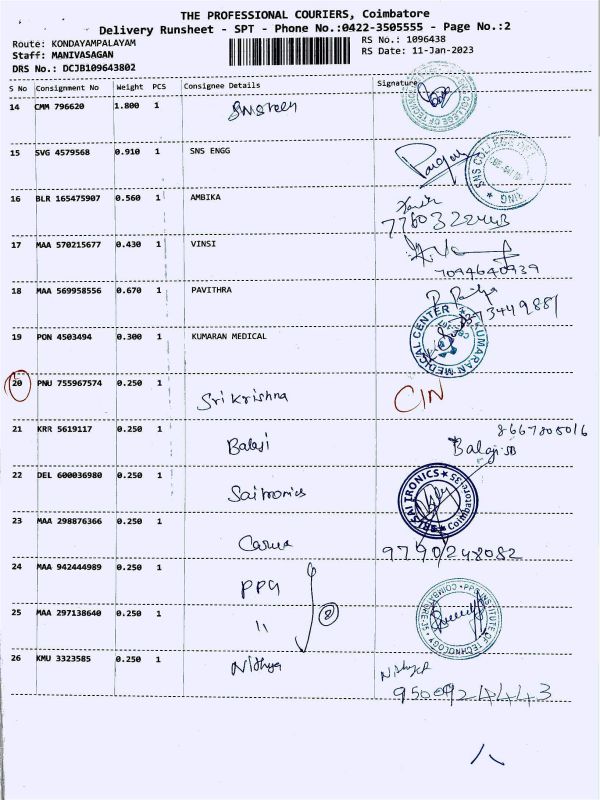 THE PROFESSIONAL COURIERS, Coimbatore
Delivery Runsheet - SPT - Phone No.:0422-3505555 - Page No.:2
Route: KONDAYAMPALAYAM RS No.: 1096438
Staff: MANIVASAGAN RS Date: 11-Jan-2023
DRS No.: DCJB109643802
S No Consignment No Weight PCS Consignee Details Signature
14 CMM 796620 1.800 1
15 SVG 4579568 0.910 1 SNS ENGG
SNS COLLEGE OF
16 BLR 165475907 0.560 1 AMBIKA
17 MAA 570215677 0.430 1 VINSI
7094640939
18 MAA 569958556 0.670 1 PAVITHRA
19 PON 4503494 0.300 1 KUMARAN MEDICAL
KUMARAN MEDICAL CENTER
20 PNU 755967574 0.250 1 Srikrishna CIN
21 KRR 5619117 0.250 1 Balaji
8667805016
22 DEL 600036980 0.250 1 Saitronics
SRISAI TRONICS
23 MAA 298876366 0.250 1
9790248082
24 MAA 942444989 0.250 1 PPG
25 MAA 297138640 0.250 1 "
PPG INSTITUTE OF TECHNOLOGY
26 KMU 3323585 0.250 1 Nithya
9500924443